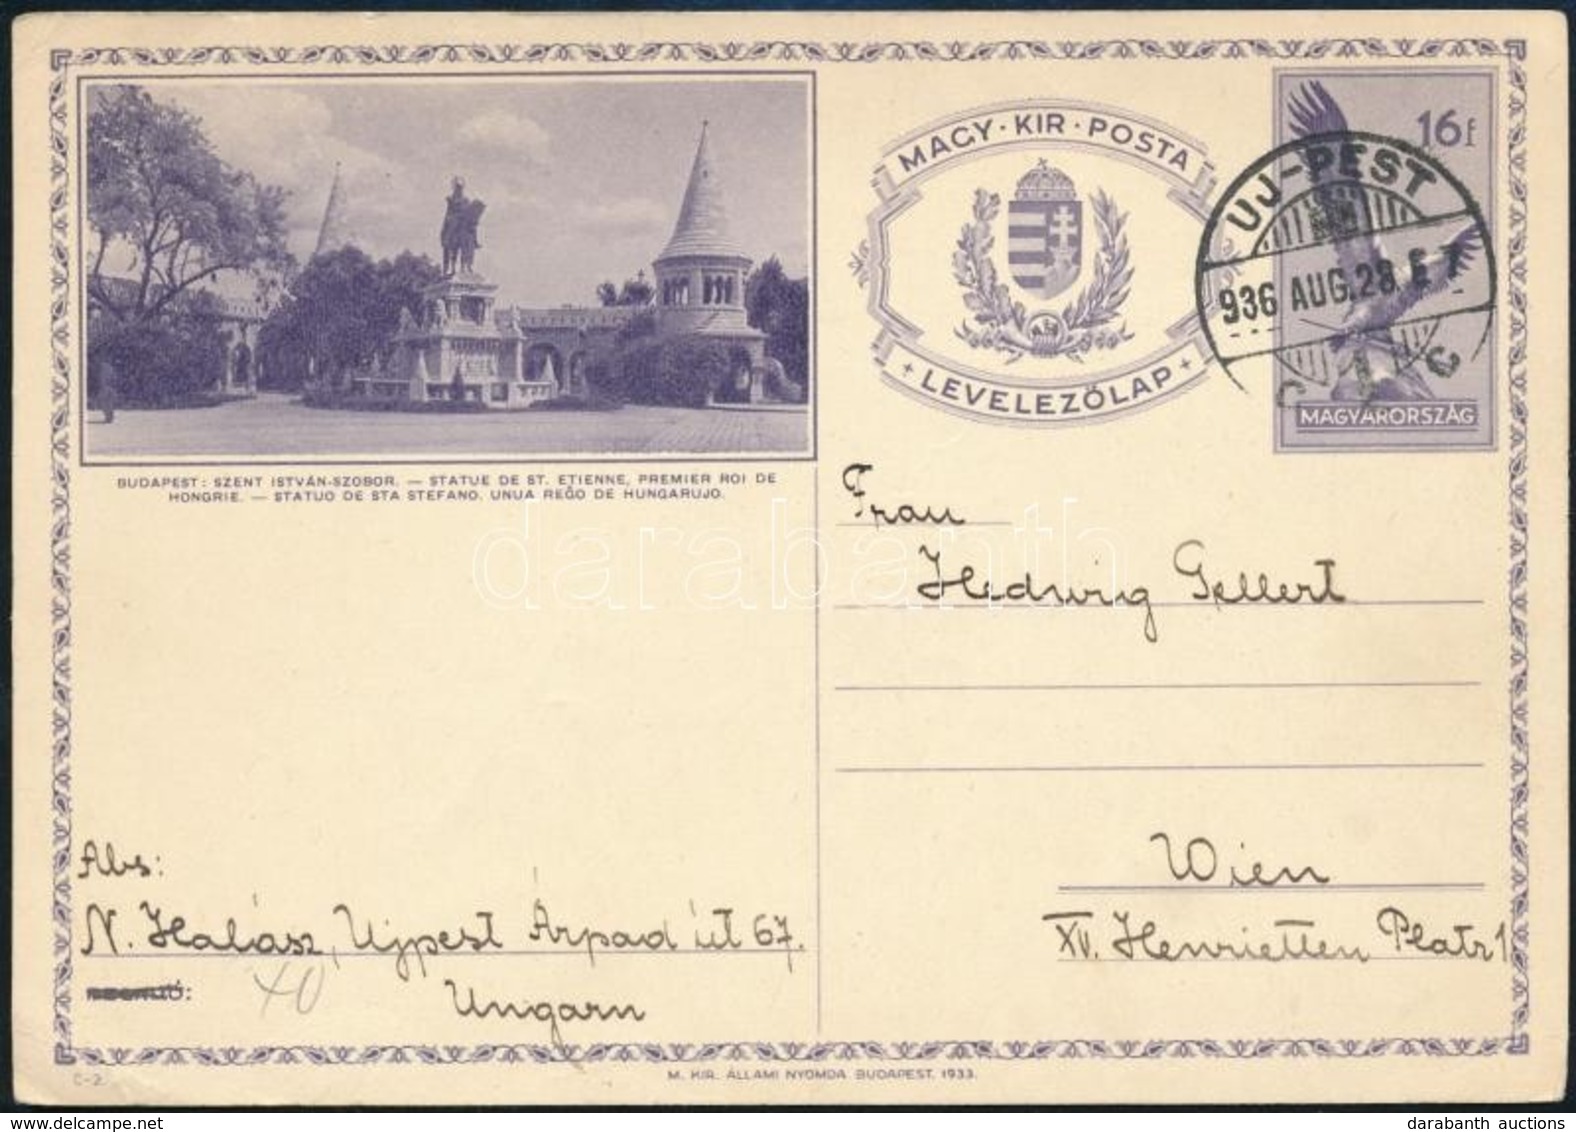 MAGY · KIR · POSTA
LEVELEZŐLAP
16 f
MAGYARORSZÁG
UJ-PEST
936 AUG. 28. E 7
BUDAPEST: SZENT ISTVÁN-SZOBOR. — STATUE DE ST. ETIENNE, PREMIER ROI DE
HONGRIE. — STATUO DE STA STEFANO. UNUA REĜO DE HUNGARUJO.
Frau
Hedwig Gellert
Wien
XV. Henrietten Platz 1
Abs:
N. Halász, Ujpest Árpád út 67.
Ungarn
40
C-2.
M. KIR. ÁLLAMI NYOMDA BUDAPEST. 1933.
darabanth
darabanth auctions
delcampe.net